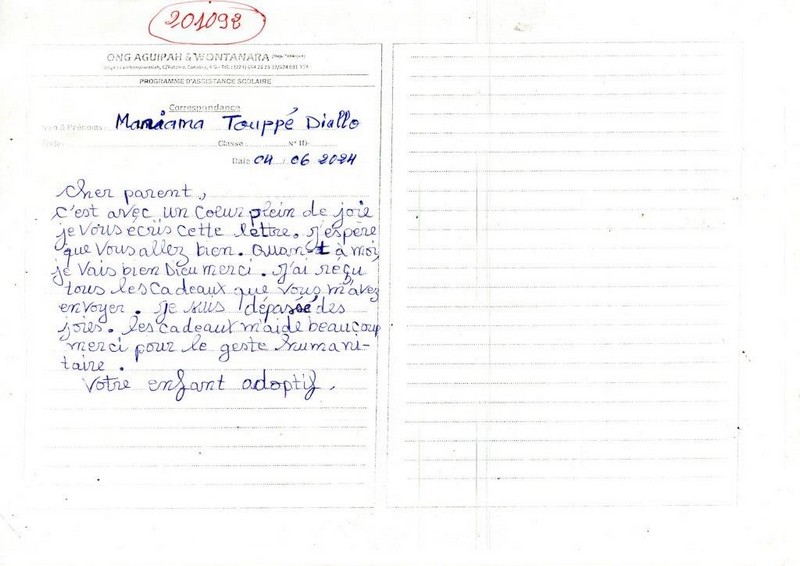 201098
ONG AGUIPAH & WONTANARA
PROGRAMME D'ASSISTANCE SCOLAIRE
Correspondance
Mariama Touppé Diallo
Classe N° ID
Date 04 / 06 2024
Cher parent,
C'est avec un coeur plein de joie
je vous écris cette lettre. j'espère
que vous allez bien. Quant à moi
je vais bien Dieu merci. j'ai réçu
tous les cadeaux que vous m'avez
envoyer. je suis dépasée des
joies. les cadeaux m'aide beaucoup
merci pour le geste humani-
taire.
Votre enfant adoptif.